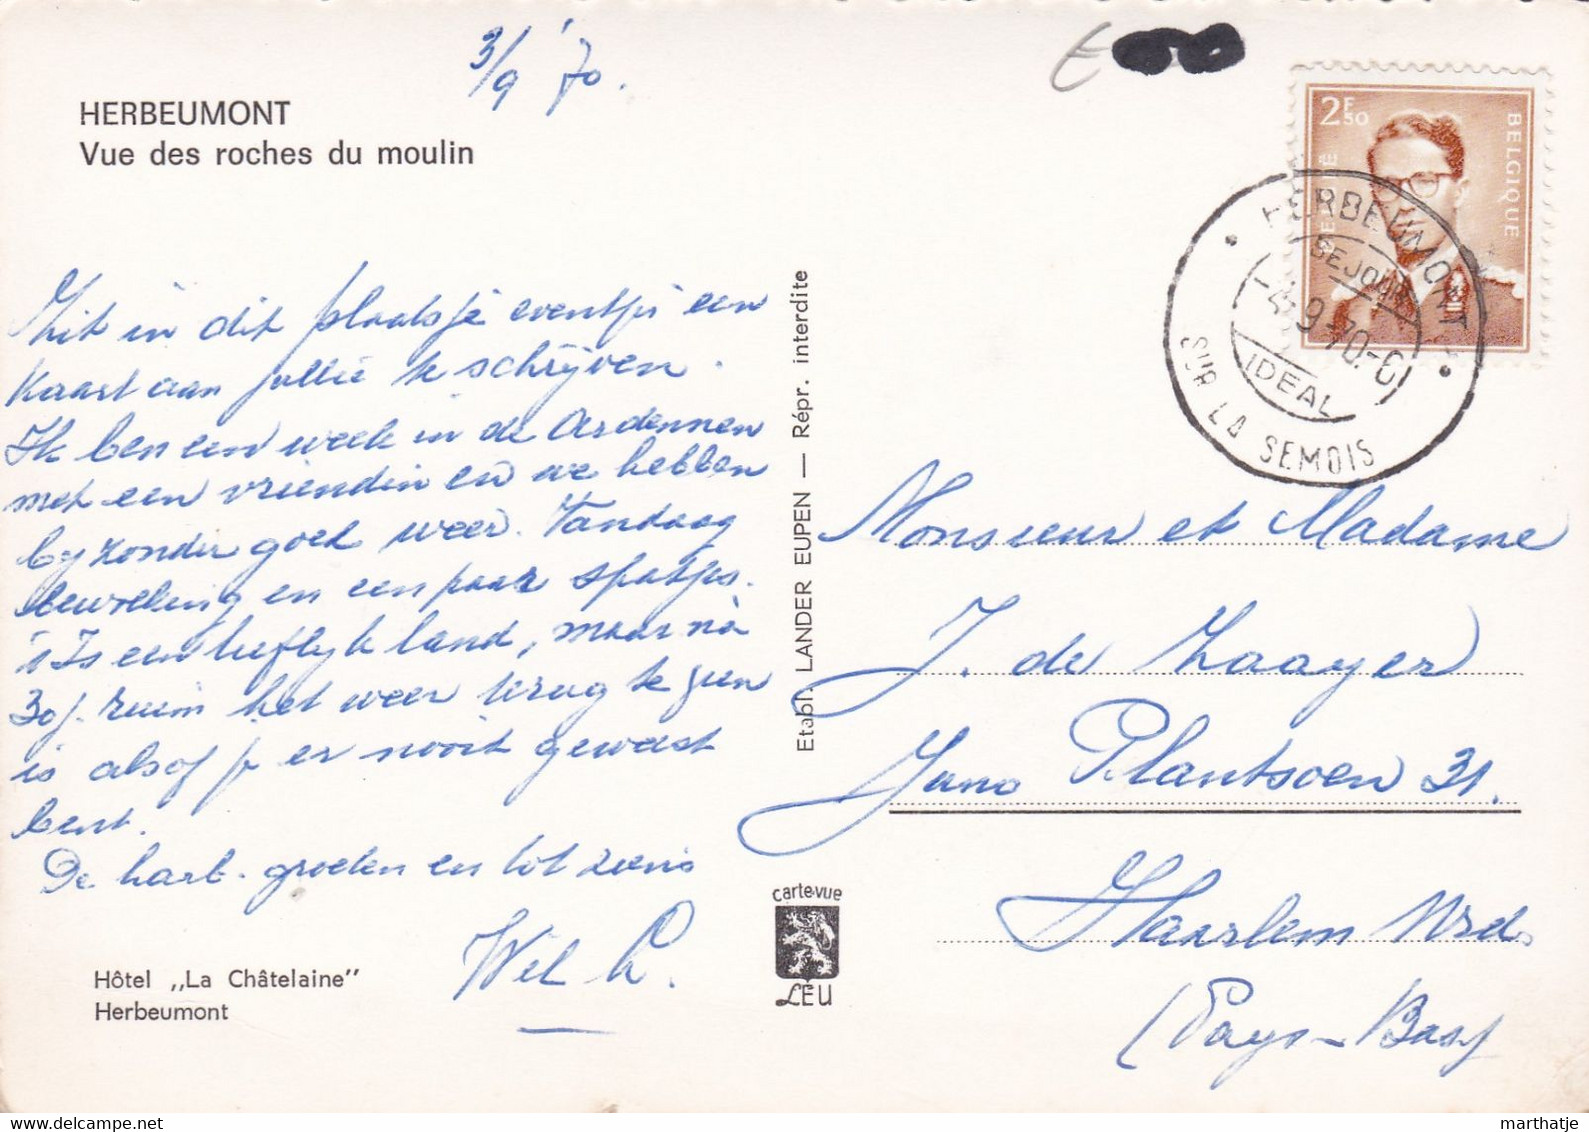 3/9 '70.
HERBEUMONT
Vue des roches du moulin
Uit in dit plaatsje eventjes een
kaart aan jullie te schrijven.
Ik ben een week in de Ardennen
met een vriendin en we hebben
byzonder goed weer. Vandaag
bewolking en een paar spatjes.
't Is een lieflyk land, maar na
30 j. ruim het weer terug te zien
is alsof je er nooit geweest
bent.
De hart. groeten en tot ziens
Wil
Hôtel „La Châtelaine"
Herbeumont
Etabl. LANDER EUPEN — Répr. interdite
carte-vue
LEU
2F50
BELGIË
BELGIQUE
HERBEUMONT
SEJOUR
-4-9-70-
IDEAL
SUR LA SEMOIS
Monsieur et Madame
J. de Haayer
Juno Plantsoen 31.
Haarlem Nrd.
(Pays-Bas)
marthatje